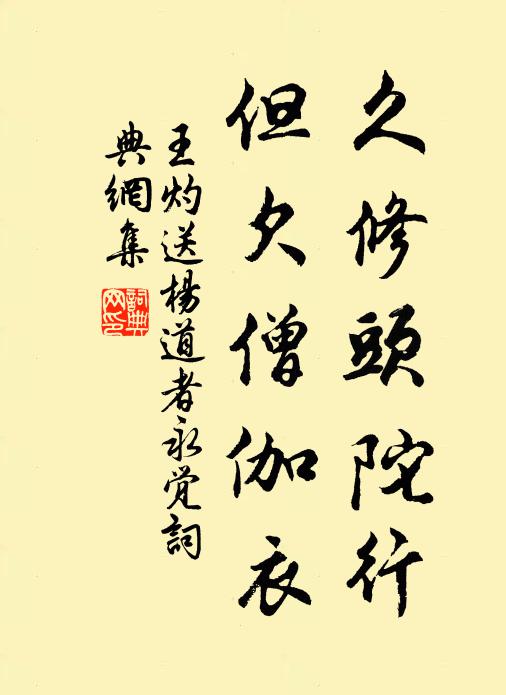 久修頭陀行
但欠僧伽衣
王灼送楊道者永覚詞
典網集
詞典網印